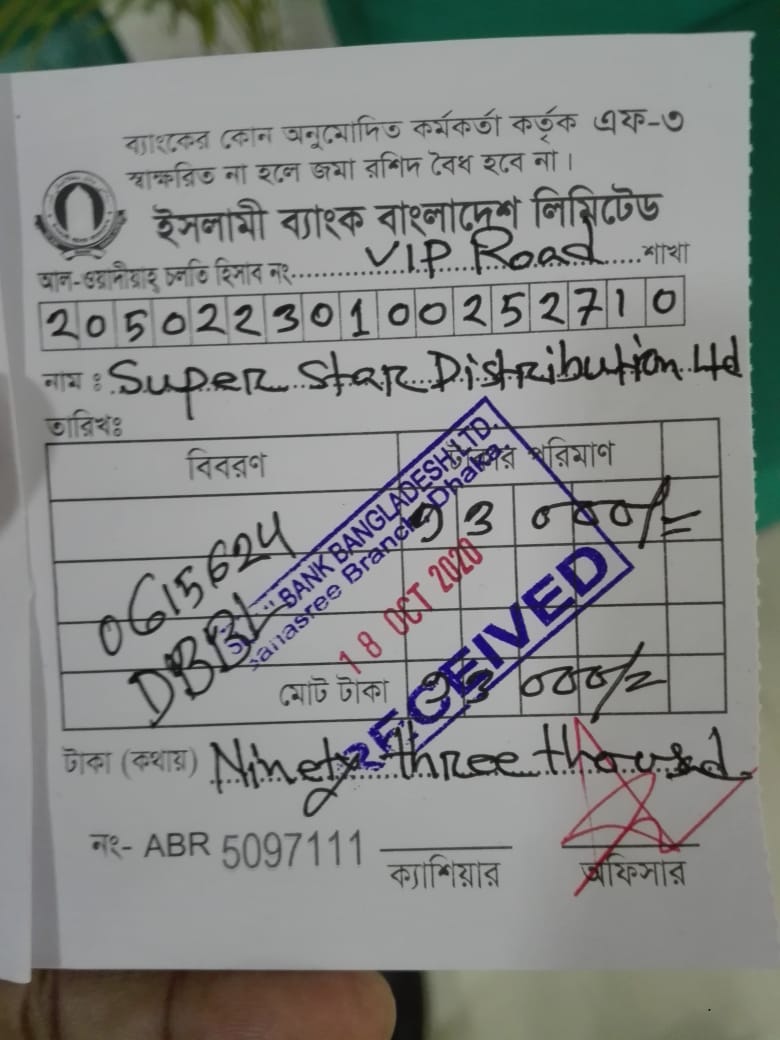 ব্যাংকের কোন অনুমোদিত কর্মকর্তা কর্তৃক এফ-৩
স্বাক্ষরিত না হলে জমা রশিদ বৈধ হবে না।
ইসলামী ব্যাংক বাংলাদেশ লিমিটেড
আল-ওয়াদীয়াহ্ চলতি হিসাব নং VIP Road শাখা
20502230100252710
নাম : Super Star Distribution Ltd
তারিখঃ
বিবরণ টাকার পরিমাণ
93 000/=
0615624
DBBL
BANK BANGLADESH LTD.
Banasree Branch, Dhaka.
18 OCT 2020
RECEIVED
মোট টাকা 93 000/=
টাকা (কথায়) Ninety three thousd
নং- ABR 5097111
ক্যাশিয়ার অফিসার